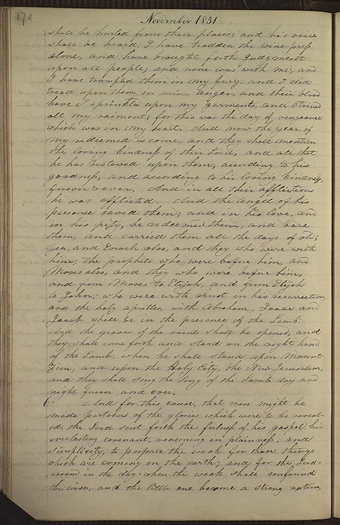 179
November 1831.
shall be hurled from their places; and his voice
shall be heard, I have trodden the wine press
alone, and have brought forth judgement
upon all people; and none was with me; and
I have trampled them in my fury, and I did
tread upon them in mine anger, and their blood
have I sprinkled upon my garments, and stained
all my raiment; for this was the day of vengeance
which was in my heart. And now the year of
my redeemed is come, and they shall mention
the loving kindness of their Lord, and all that
he has bestowed upon them, according to his
goodness, and according to his loving kindness,
forever & ever. And in all their afflictions
he was afflicted. And the angel of his
presence saved them; and in his love, and
in his pity, he redeemed them, and bare
them, and carried them all the days of old;
yea, and Enoch also, and they who were with
him; the prophets who were before him, and
Moses also, and they who were before him,
and from Moses to Elijah, and from Elijah
to John, who were with Christ in his resurrection,
and the holy apostles, with Abraham, Isaac and
Jacob shall be in the presence of the Lamb.
And the graves of the saints shall be opened, and
they shall come forth and stand on the right hand
of the Lamb, when he shall stand upon Mount
Zion, and upon the Holy City, the New Jerusalem,
and they shall sing the song of the Lamb day and
night forever and ever.
And for this cause, that men might be
made partakers of the glories which were to be reveal-
ed, the Lord sent forth the fulness of his gospel, his
everlasting covenant, reasoning in plainness, and
simplicity, to prepare the weak for those things
which are coming on the earth; and for the Lord's
errand in the day when the weak shall confound
the wise, and the little one become a strong nation